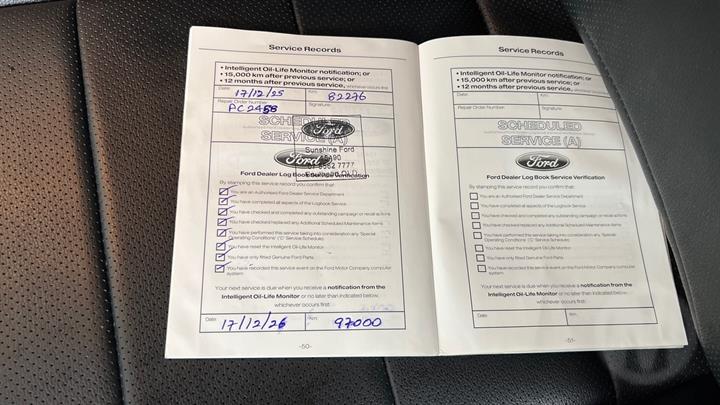 Service Records
• Intelligent Oil-Life Monitor notification; or
• 15,000 km after previous service; or
• 12 months after previous service, whichever occurs first
Date: Km:
17/12/25 82276
Repair Order Number: Signature:
SCHEDULED
SERVICE (A)
Ford
Sunshine Ford
Ford
Ford Dealer Log Book Service Verification
By stamping this service record you confirm that:
You are an Authorised Ford Dealer Service Department
You have completed all aspects of the Logbook Service
You have checked and completed any outstanding campaign or recall actions
You have checked/replaced any Additional Scheduled Maintenance items
You have performed this service taking into consideration any 'Special
Operating Conditions' ('C' Service Schedule)
You have reset the Intelligent Oil-Life Monitor
You have only fitted Genuine Ford Parts
You have recorded this service event on the Ford Motor Company computer
system
Your next service is due when you receive a notification from the
Intelligent Oil-Life Monitor or no later than indicated below,
whichever occurs first:
Date: Km:
17/12/26 97000
-50-
Service Records
• Intelligent Oil-Life Monitor notification; or
• 15,000 km after previous service; or
• 12 months after previous service, whichever occurs first
Date: Km:
Repair Order Number: Signature:
SCHEDULED
SERVICE (A)
Ford
Ford Dealer Log Book Service Verification
By stamping this service record you confirm that:
You are an Authorised Ford Dealer Service Department
You have completed all aspects of the Logbook Service
You have checked and completed any outstanding campaign or recall actions
You have checked/replaced any Additional Scheduled Maintenance items
You have performed this service taking into consideration any 'Special
Operating Conditions' ('C' Service Schedule)
You have reset the Intelligent Oil-Life Monitor
You have only fitted Genuine Ford Parts
You have recorded this service event on the Ford Motor Company computer
system
Your next service is due when you receive a notification from the
Intelligent Oil-Life Monitor or no later than indicated below,
whichever occurs first:
Date: Km:
-51-